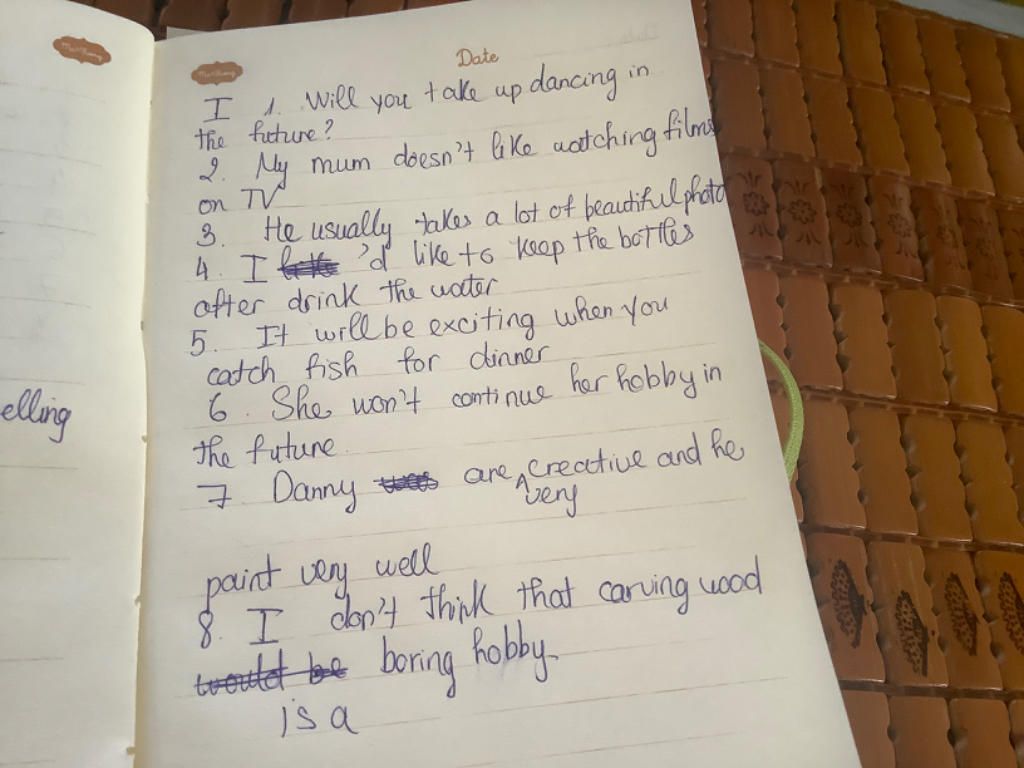 Date
I 1. Will you take up dancing in
the future?
2. My mum doesn't like watching films
on TV
3. He usually takes a lot of beautiful photo
4. I 'd like to keep the bottles
after drink the water
5. It will be exciting when you
catch fish for dinner
6. She won't continue her hobby in
the future.
elling
7 Danny are very creative and he
paint very well
8. I don't think that carving wood
would be boring hobby.
is a